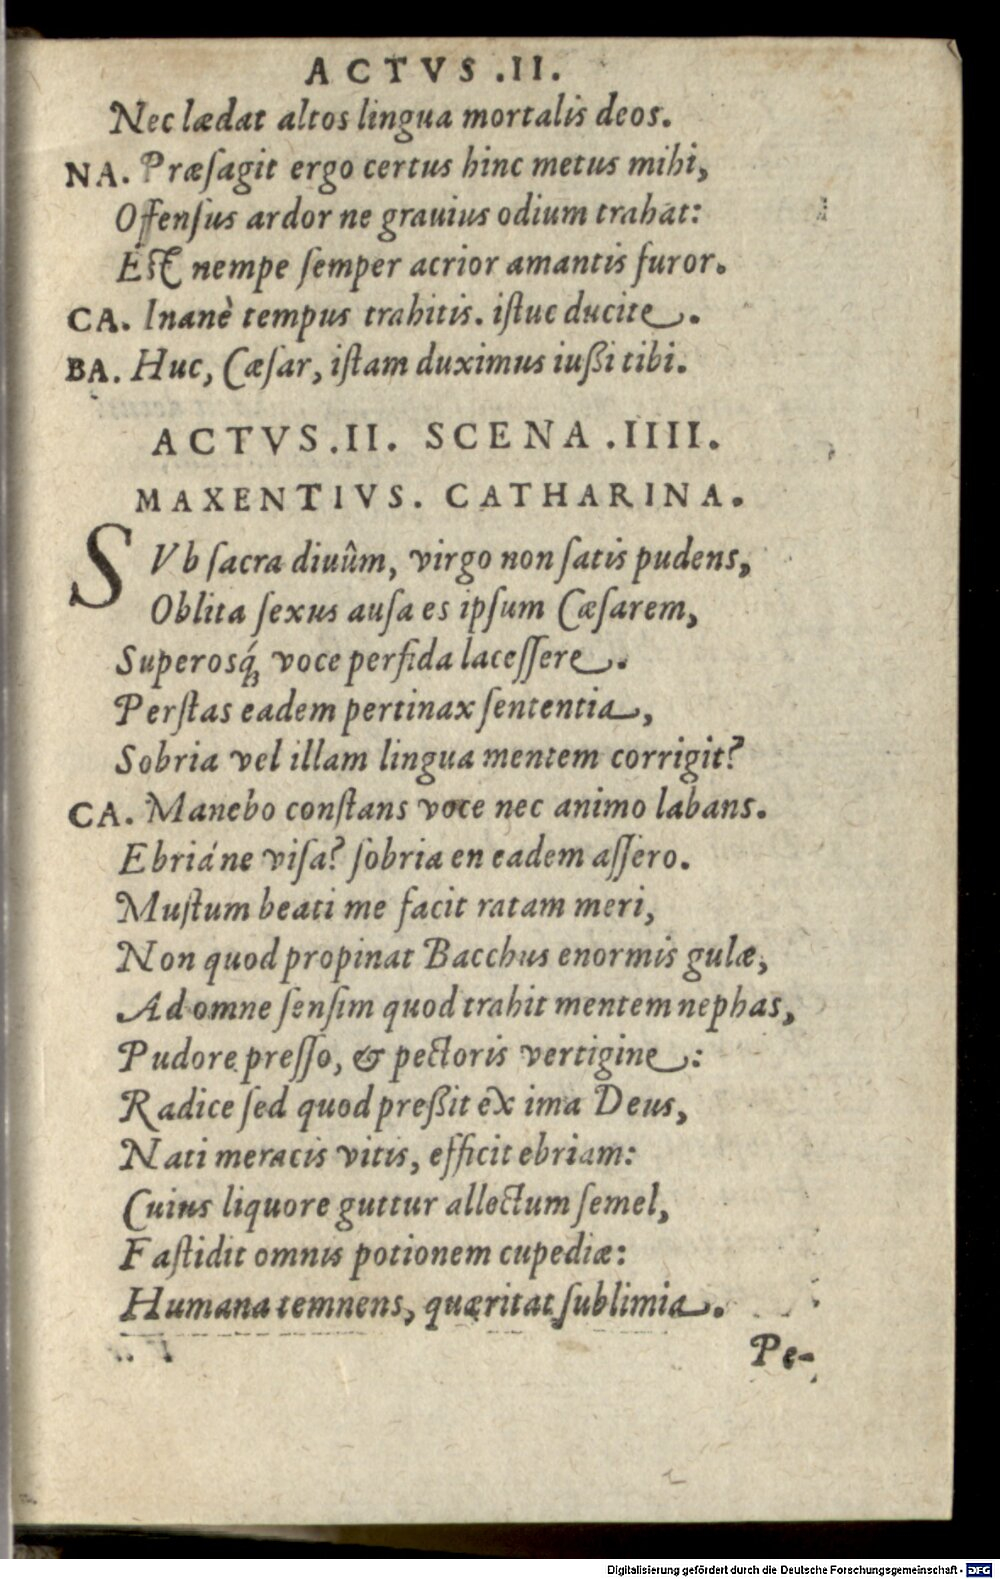 ACTVS .II.
Nec lædat altos lingua mortalis deos.
NA. Præſagit ergo certus hinc metus mihi,
Offenſus ardor ne grauius odium trahat:
Eſt nempe ſemper acrior amantis furor.
CA. Inanè tempus trahitis. iſtuc ducite.
BA. Huc, Cæſar, iſtam duximus iußi tibi.
ACTVS.II. SCENA .IIII.
MAXENTIVS. CATHARINA.
SVb ſacra diuûm, virgo non ſatis pudens,
Oblita ſexus auſa es ipſum Cæſarem,
Superosq́ꝫ voce perfida laceſſere.
Perſtas eadem pertinax ſententia,
Sobria vel illam lingua mentem corrigit?
CA. Manebo conſtans voce nec animo labans.
Ebriáne viſa? ſobria en eadem aſſero.
Muſtum beati me facit ratam meri,
Non quod propinat Bacchus enormis gulæ,
Ad omne ſenſim quod trahit mentem nephas,
Pudore preſſo, & pectoris vertigine:
Radice ſed quod preßit ex ima Deus,
Nati meracis vitis, efficit ebriam:
Cuius liquore guttur allectum ſemel,
Faſtidit omnis potionem cupediæ:
Humana temnens, quæritat ſublimia.
Pe-
Digitalisierung gefördert durch die Deutsche Forschungsgemeinschaft - DFG